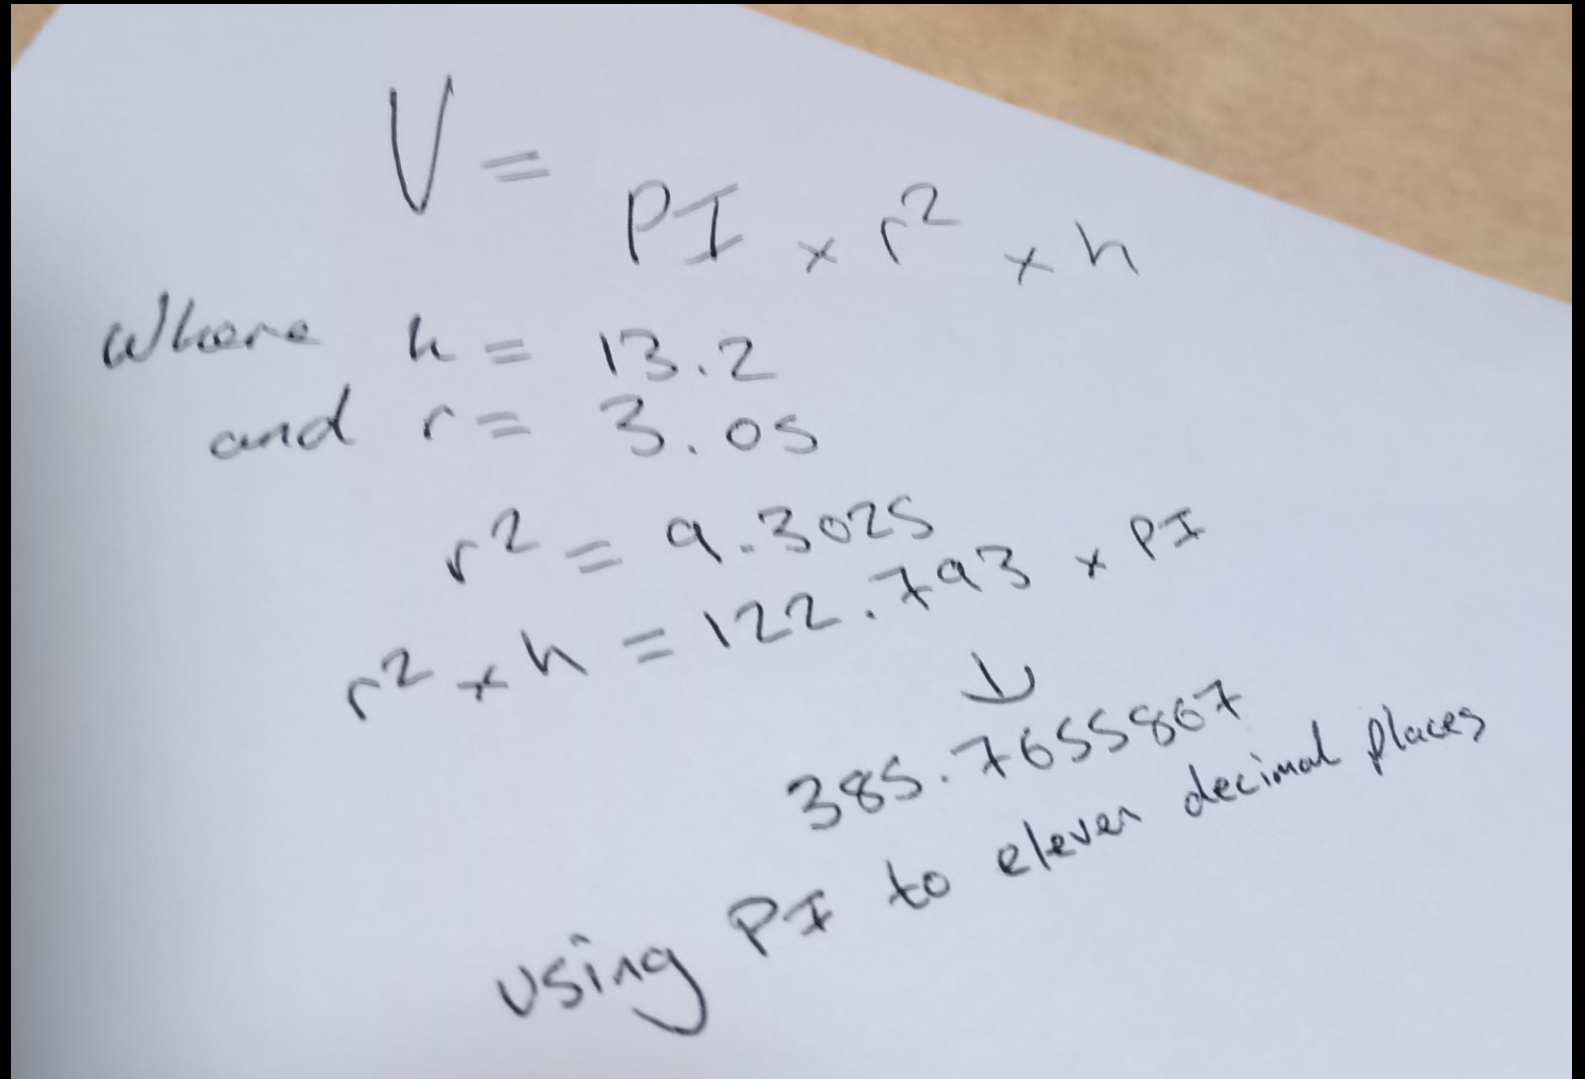 V = PI × r² × h
where h = 13.2
and r = 3.05
r² = 9.3025
r² × h = 122.793 × PI
↓
385.7655867
using PI to eleven decimal places